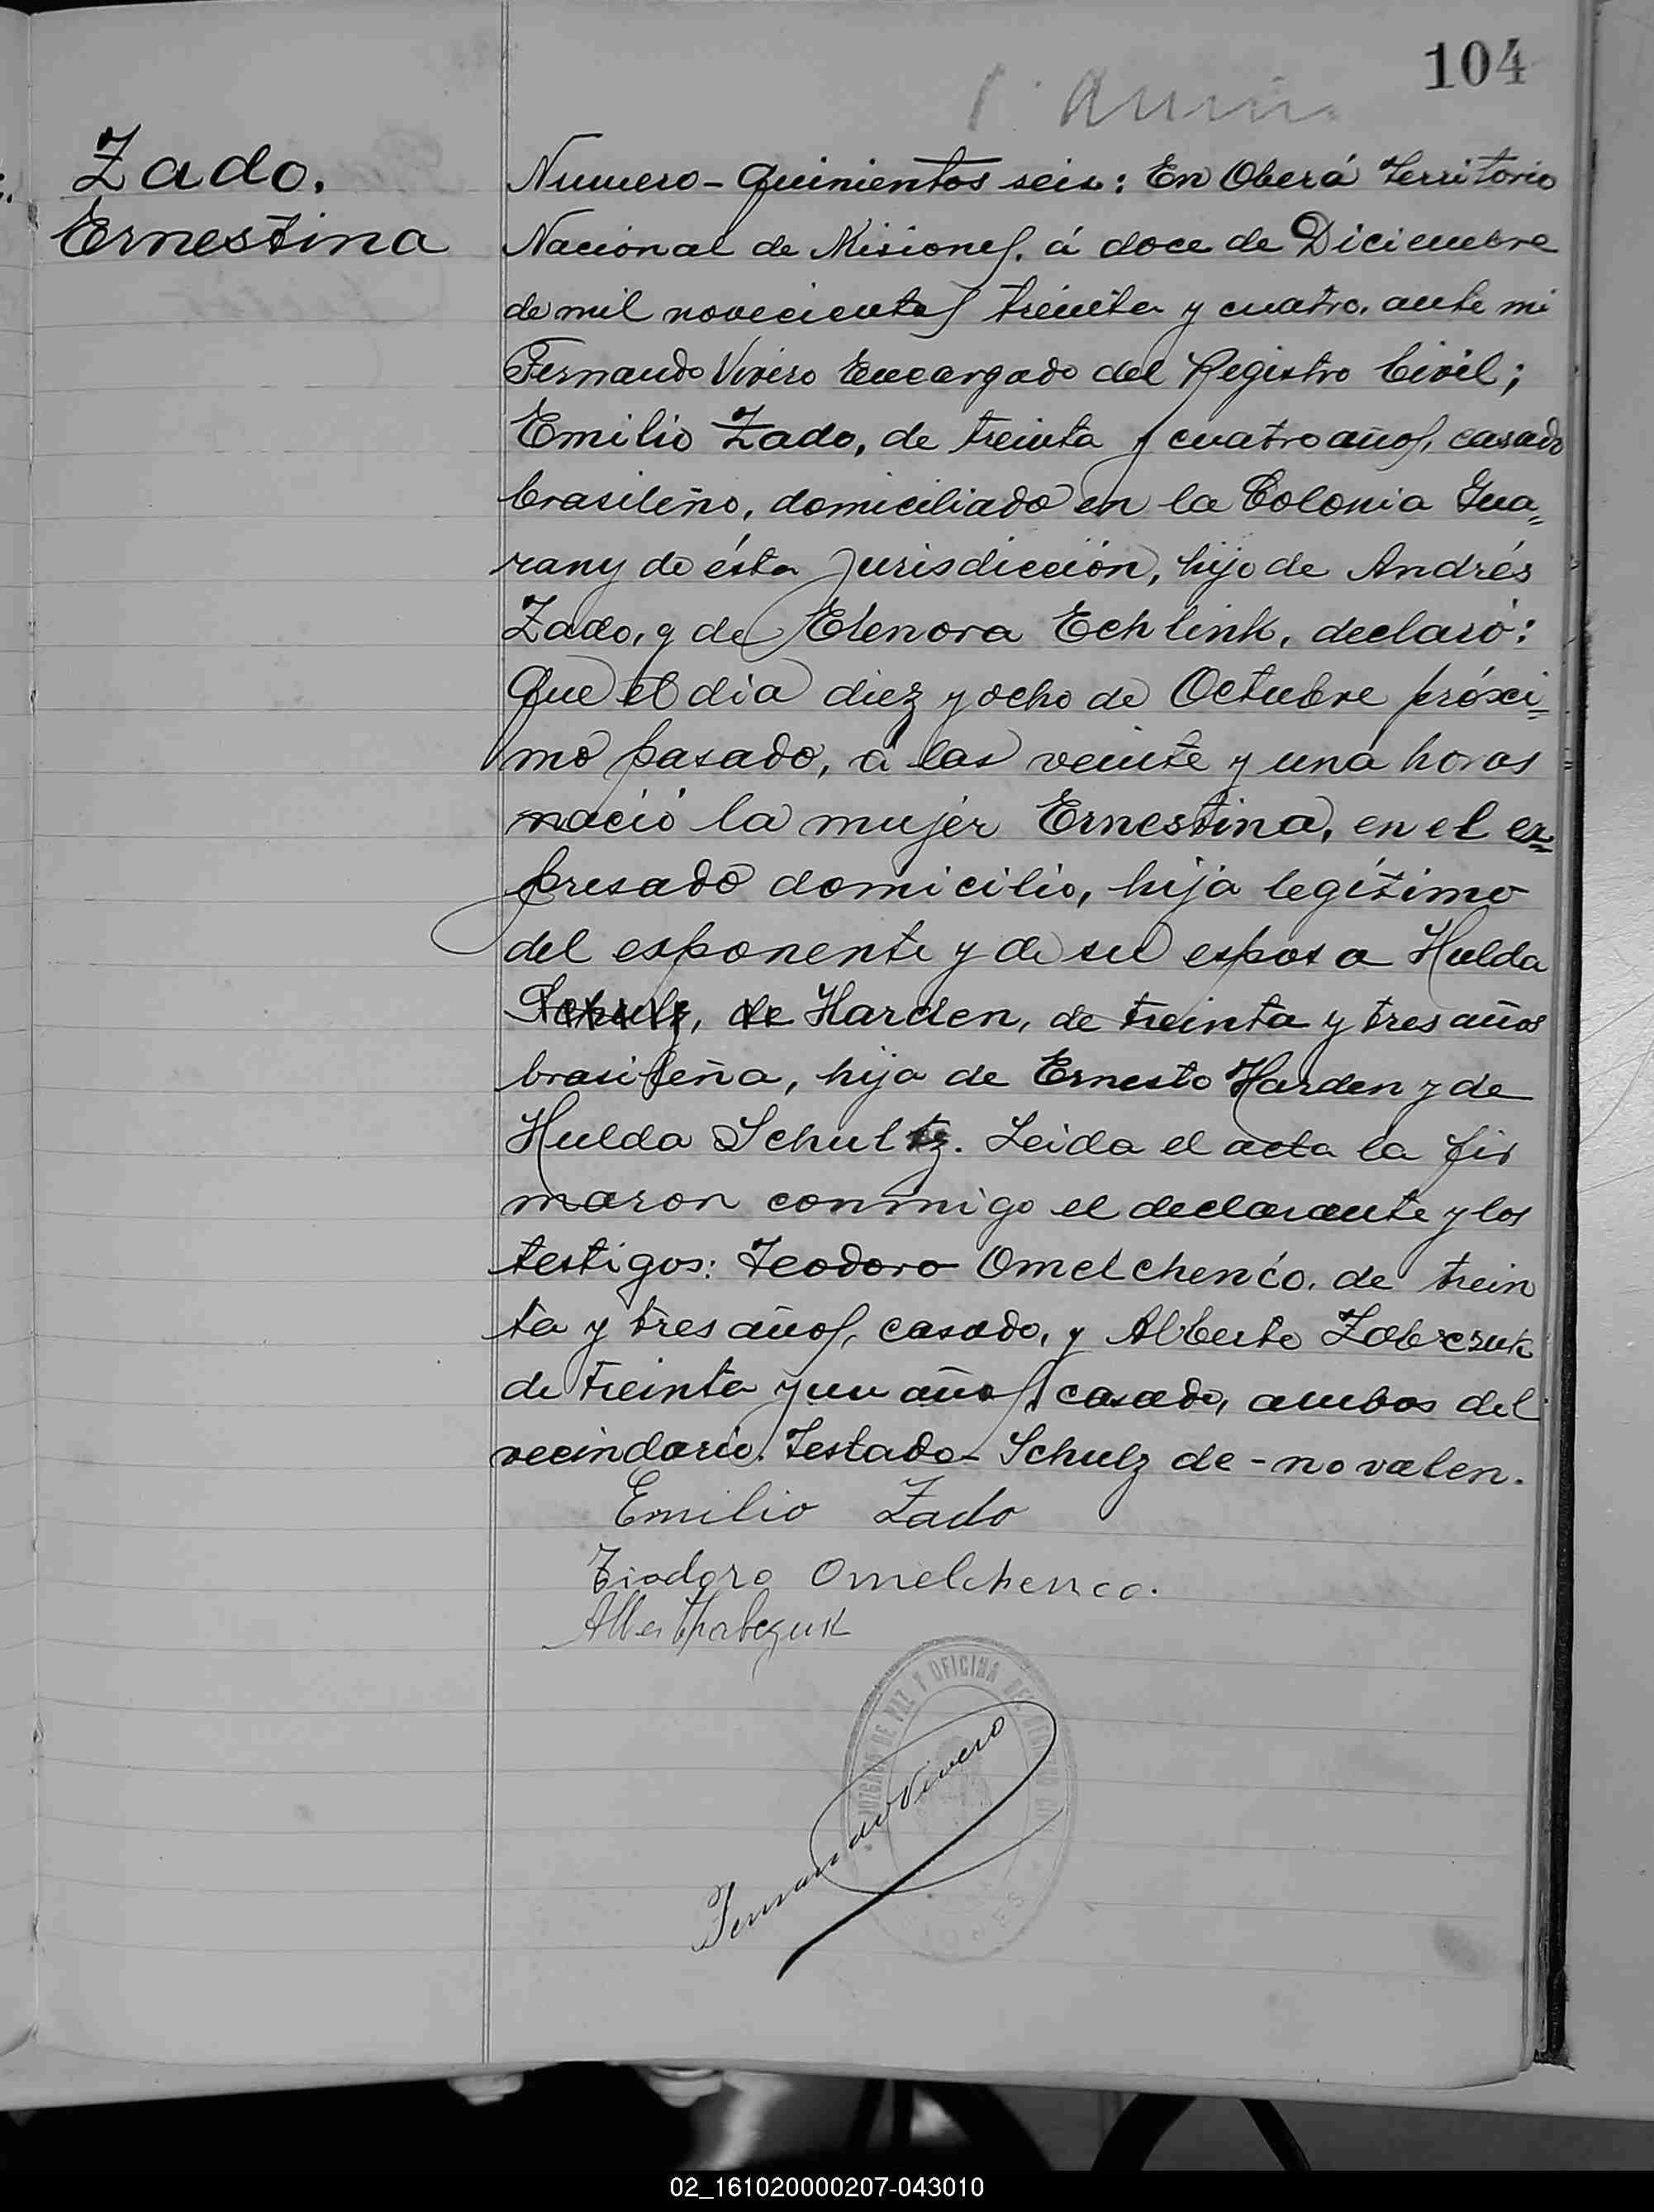 104
Zado.
Ernestina
Numero - Quinientos seis: En Oberá Territorio
Nacional de Misiones. á doce de Diciembre
de mil novecientos treinta y cuatro. ante mi
Fernando Vivero Encargado del Registro Civil;
Emilio Zado, de treinta y cuatro años, casado
brasileño, domiciliado en la Colonia Gua=
rany de ésta jurisdicción, hijo de Andrés
Zado, y de Elenora Echlink, declaró:
Que el dia diez y ocho de Octubre próxi=
mo pasado, á las veinte y una horas
nació la mujer Ernestina, en el ex=
presado domicilio, hija legítimo
del exponente y de su esposa Hulda
Schulz, de Harden, de treinta y tres años
brasileña, hija de Ernesto Harden y de
Hulda Schultz. Leida el acta la fir
maron conmigo el declarante y los
testigos: Teodoro Omelchenco. de trein
ta y tres años, casado, y Alberto Zabrczuk
de treinta y un años, casado, ambos del
vecindario. Testado - Schulz de - no valen.
Emilio Zado
Teodoro Omelchenco.
JUZGADO DE PAZ Y OFICINA DEL REGISTRO CIVIL
Fernando Vivero
02_161020000207-043010